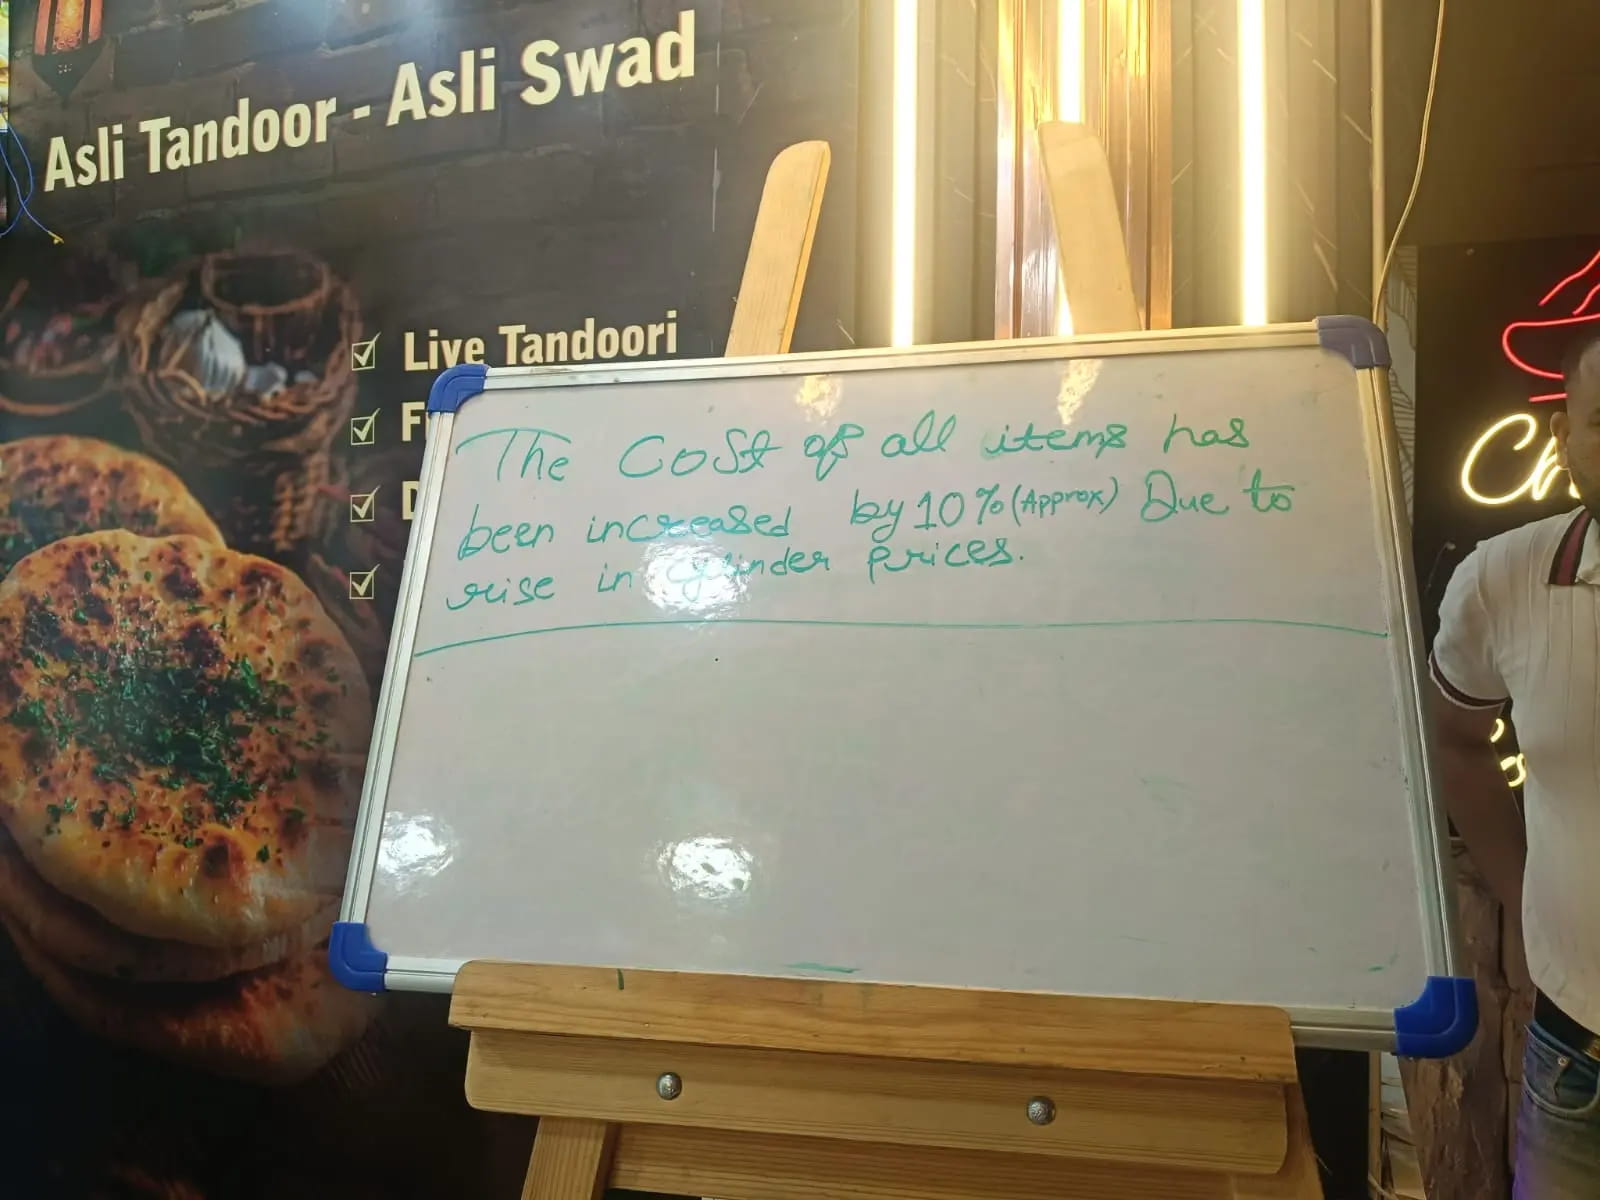 Asli Tandoor - Asli Swad
Live Tandoori
The Cost of all items has
been increased by 10% (Approx) Due to
rise in cylinder prices.